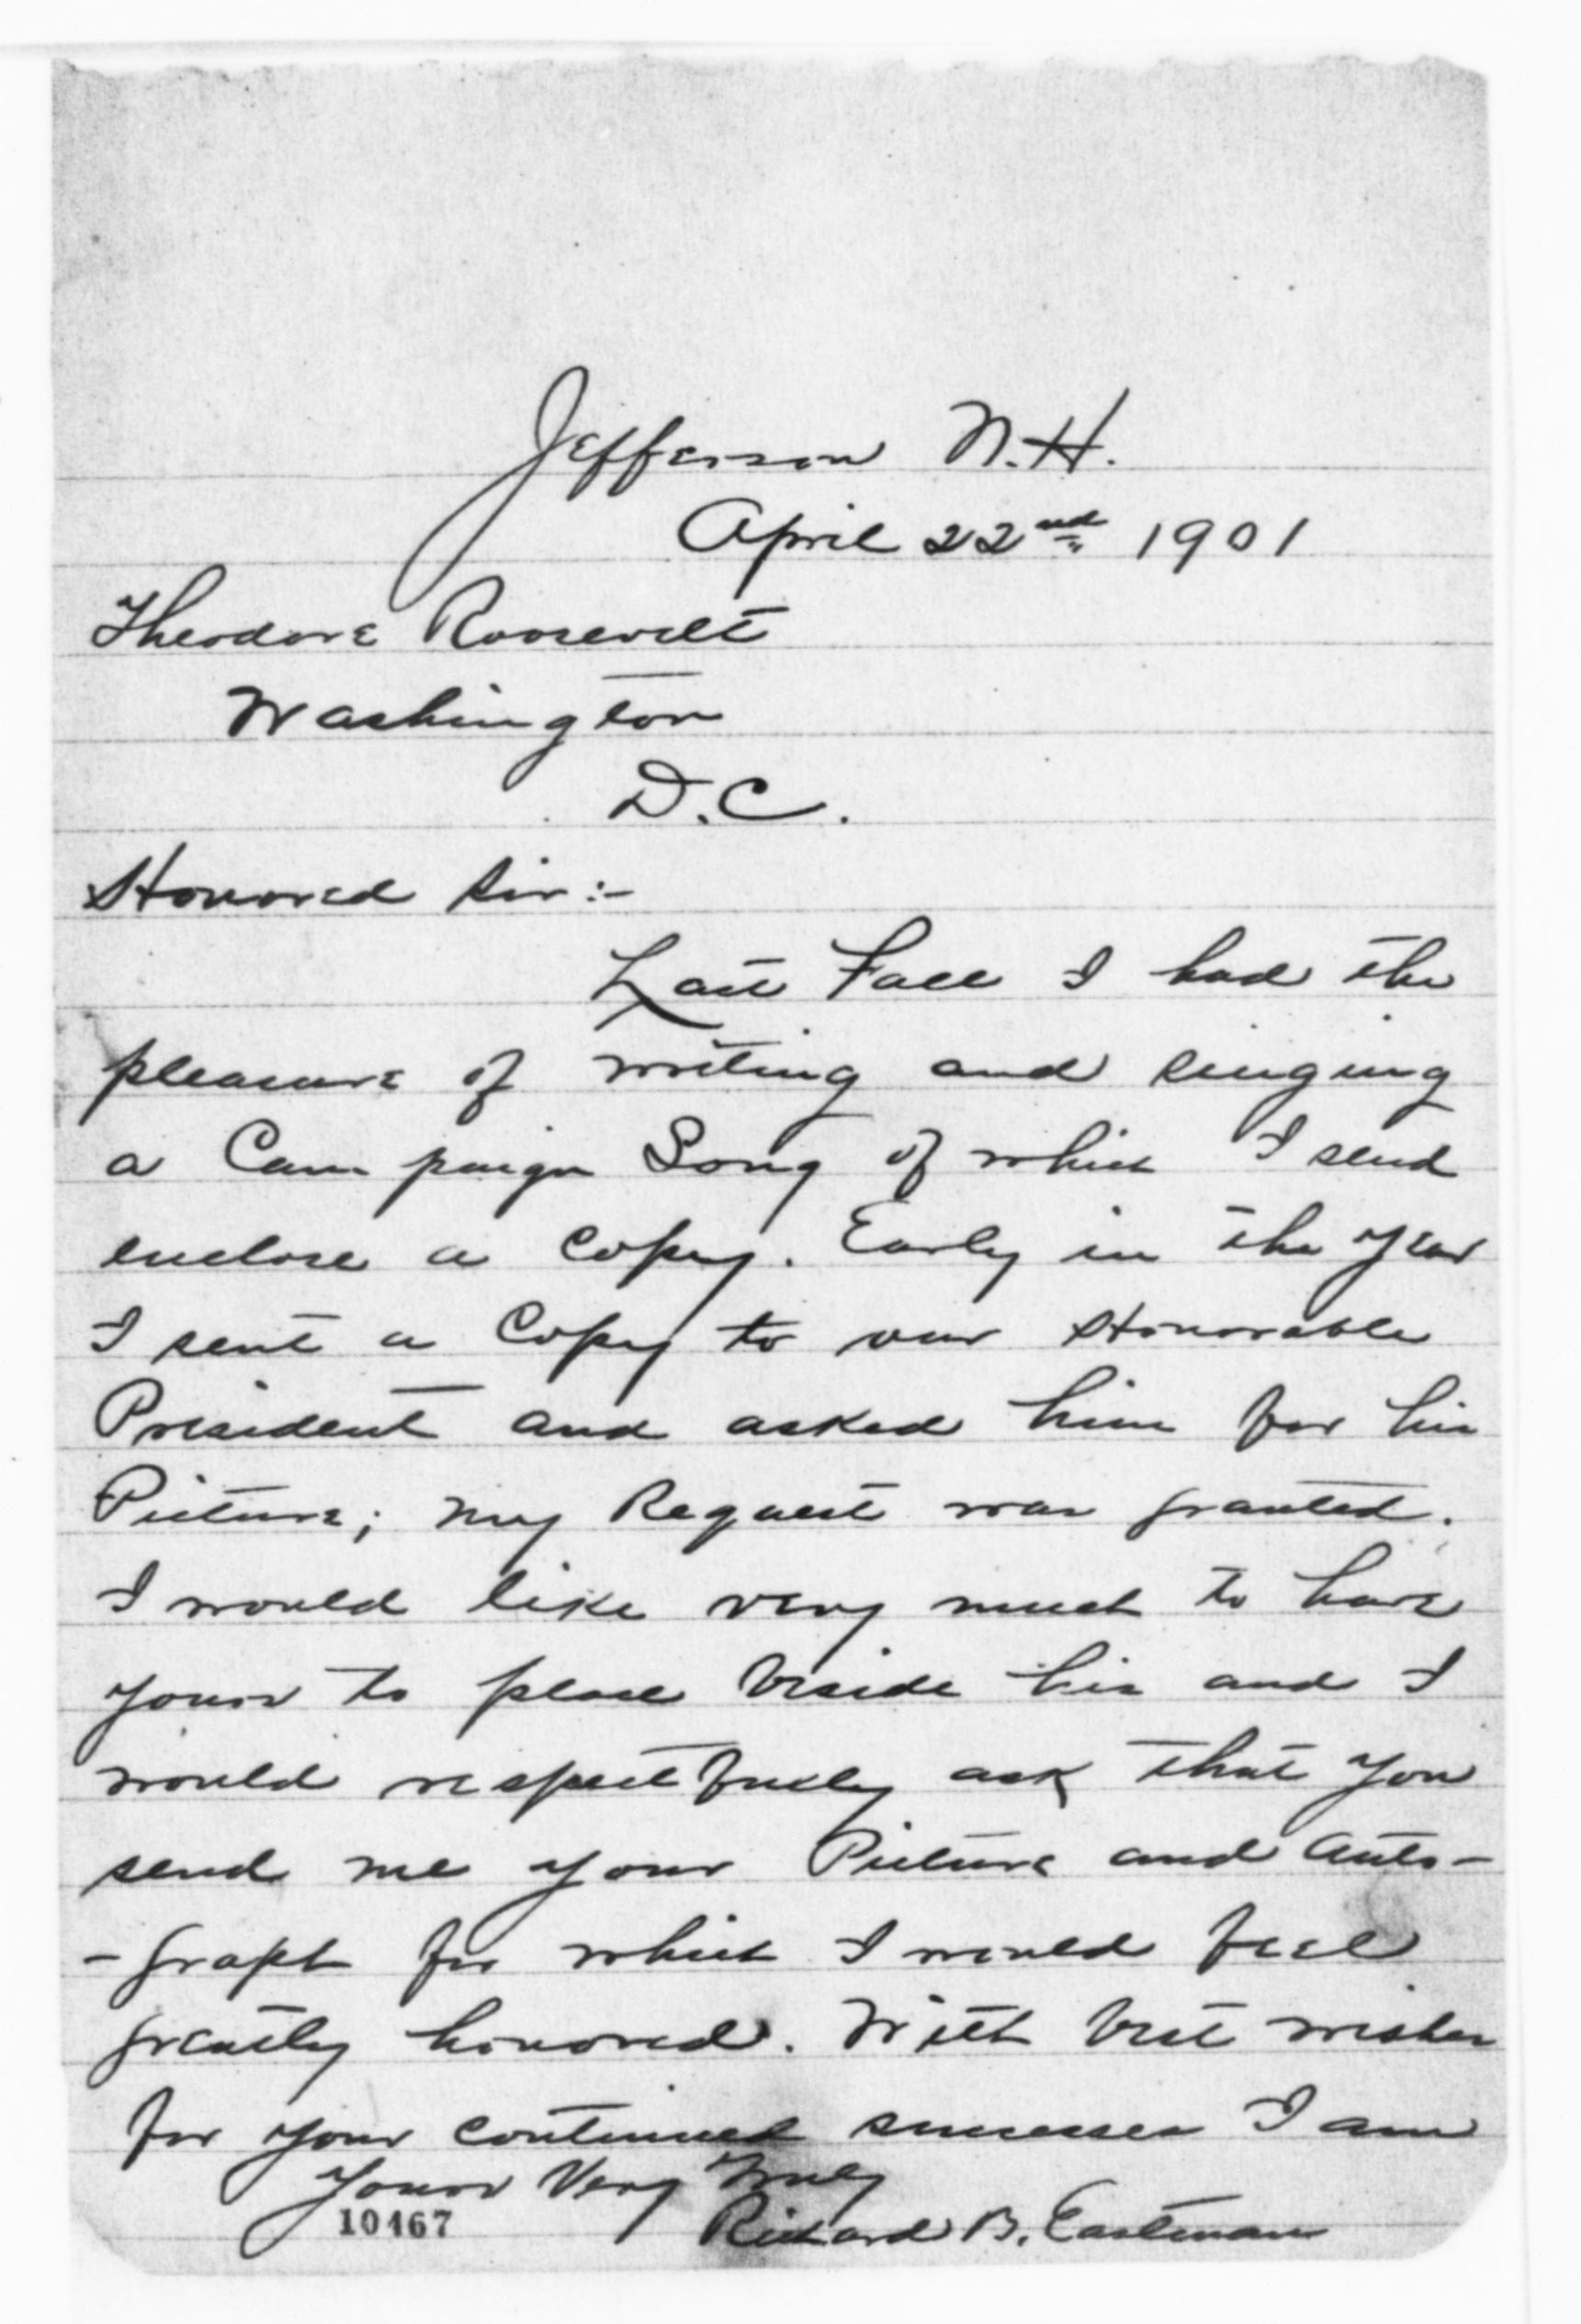 Jefferson N.H.
April 22nd 1901
Theodore Roosevelt
Washington
D.C.
Honored Sir:-
Last Fall I had the
pleasure of writing and singing
a Campaign Song of which I send
enclose a Copy. Early in the Year
I sent a Copy to our Honorable
President and asked him for his
Picture; my Request was granted.
I would like very much to have
yours to place beside his and I
would respectfully ask that you
send me your Picture and Auto-
-graph for which I would feel
greatly honored. With best wishes
for your continued successes I am
Yours Very Truly
Richard B. Eastman
10467